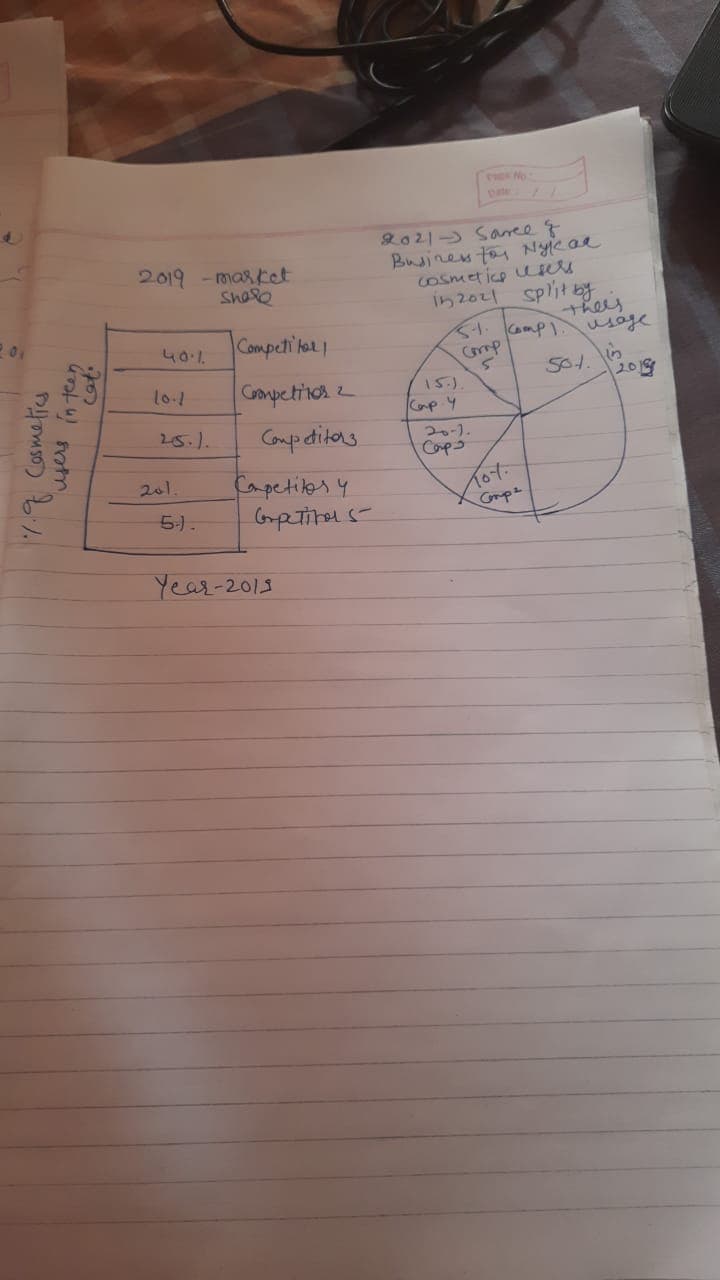 PAGE No.:
DATE: / /
2019 - market
share
% of Cosmetics
users in teen
cat.
40%
Competitor 1
10%
Competitor 2
25%
Competitor 3
20%
Competitor 4
5%
Competitor 5
Year-2019
2021 → Source of
Business for Nykaa
cosmetics users
in 2021 split by
their
usage
in
2019
5%
Comp
5
Comp 1.
50%
15%
Comp 4
20%
Comp 3
10%
Comp 2